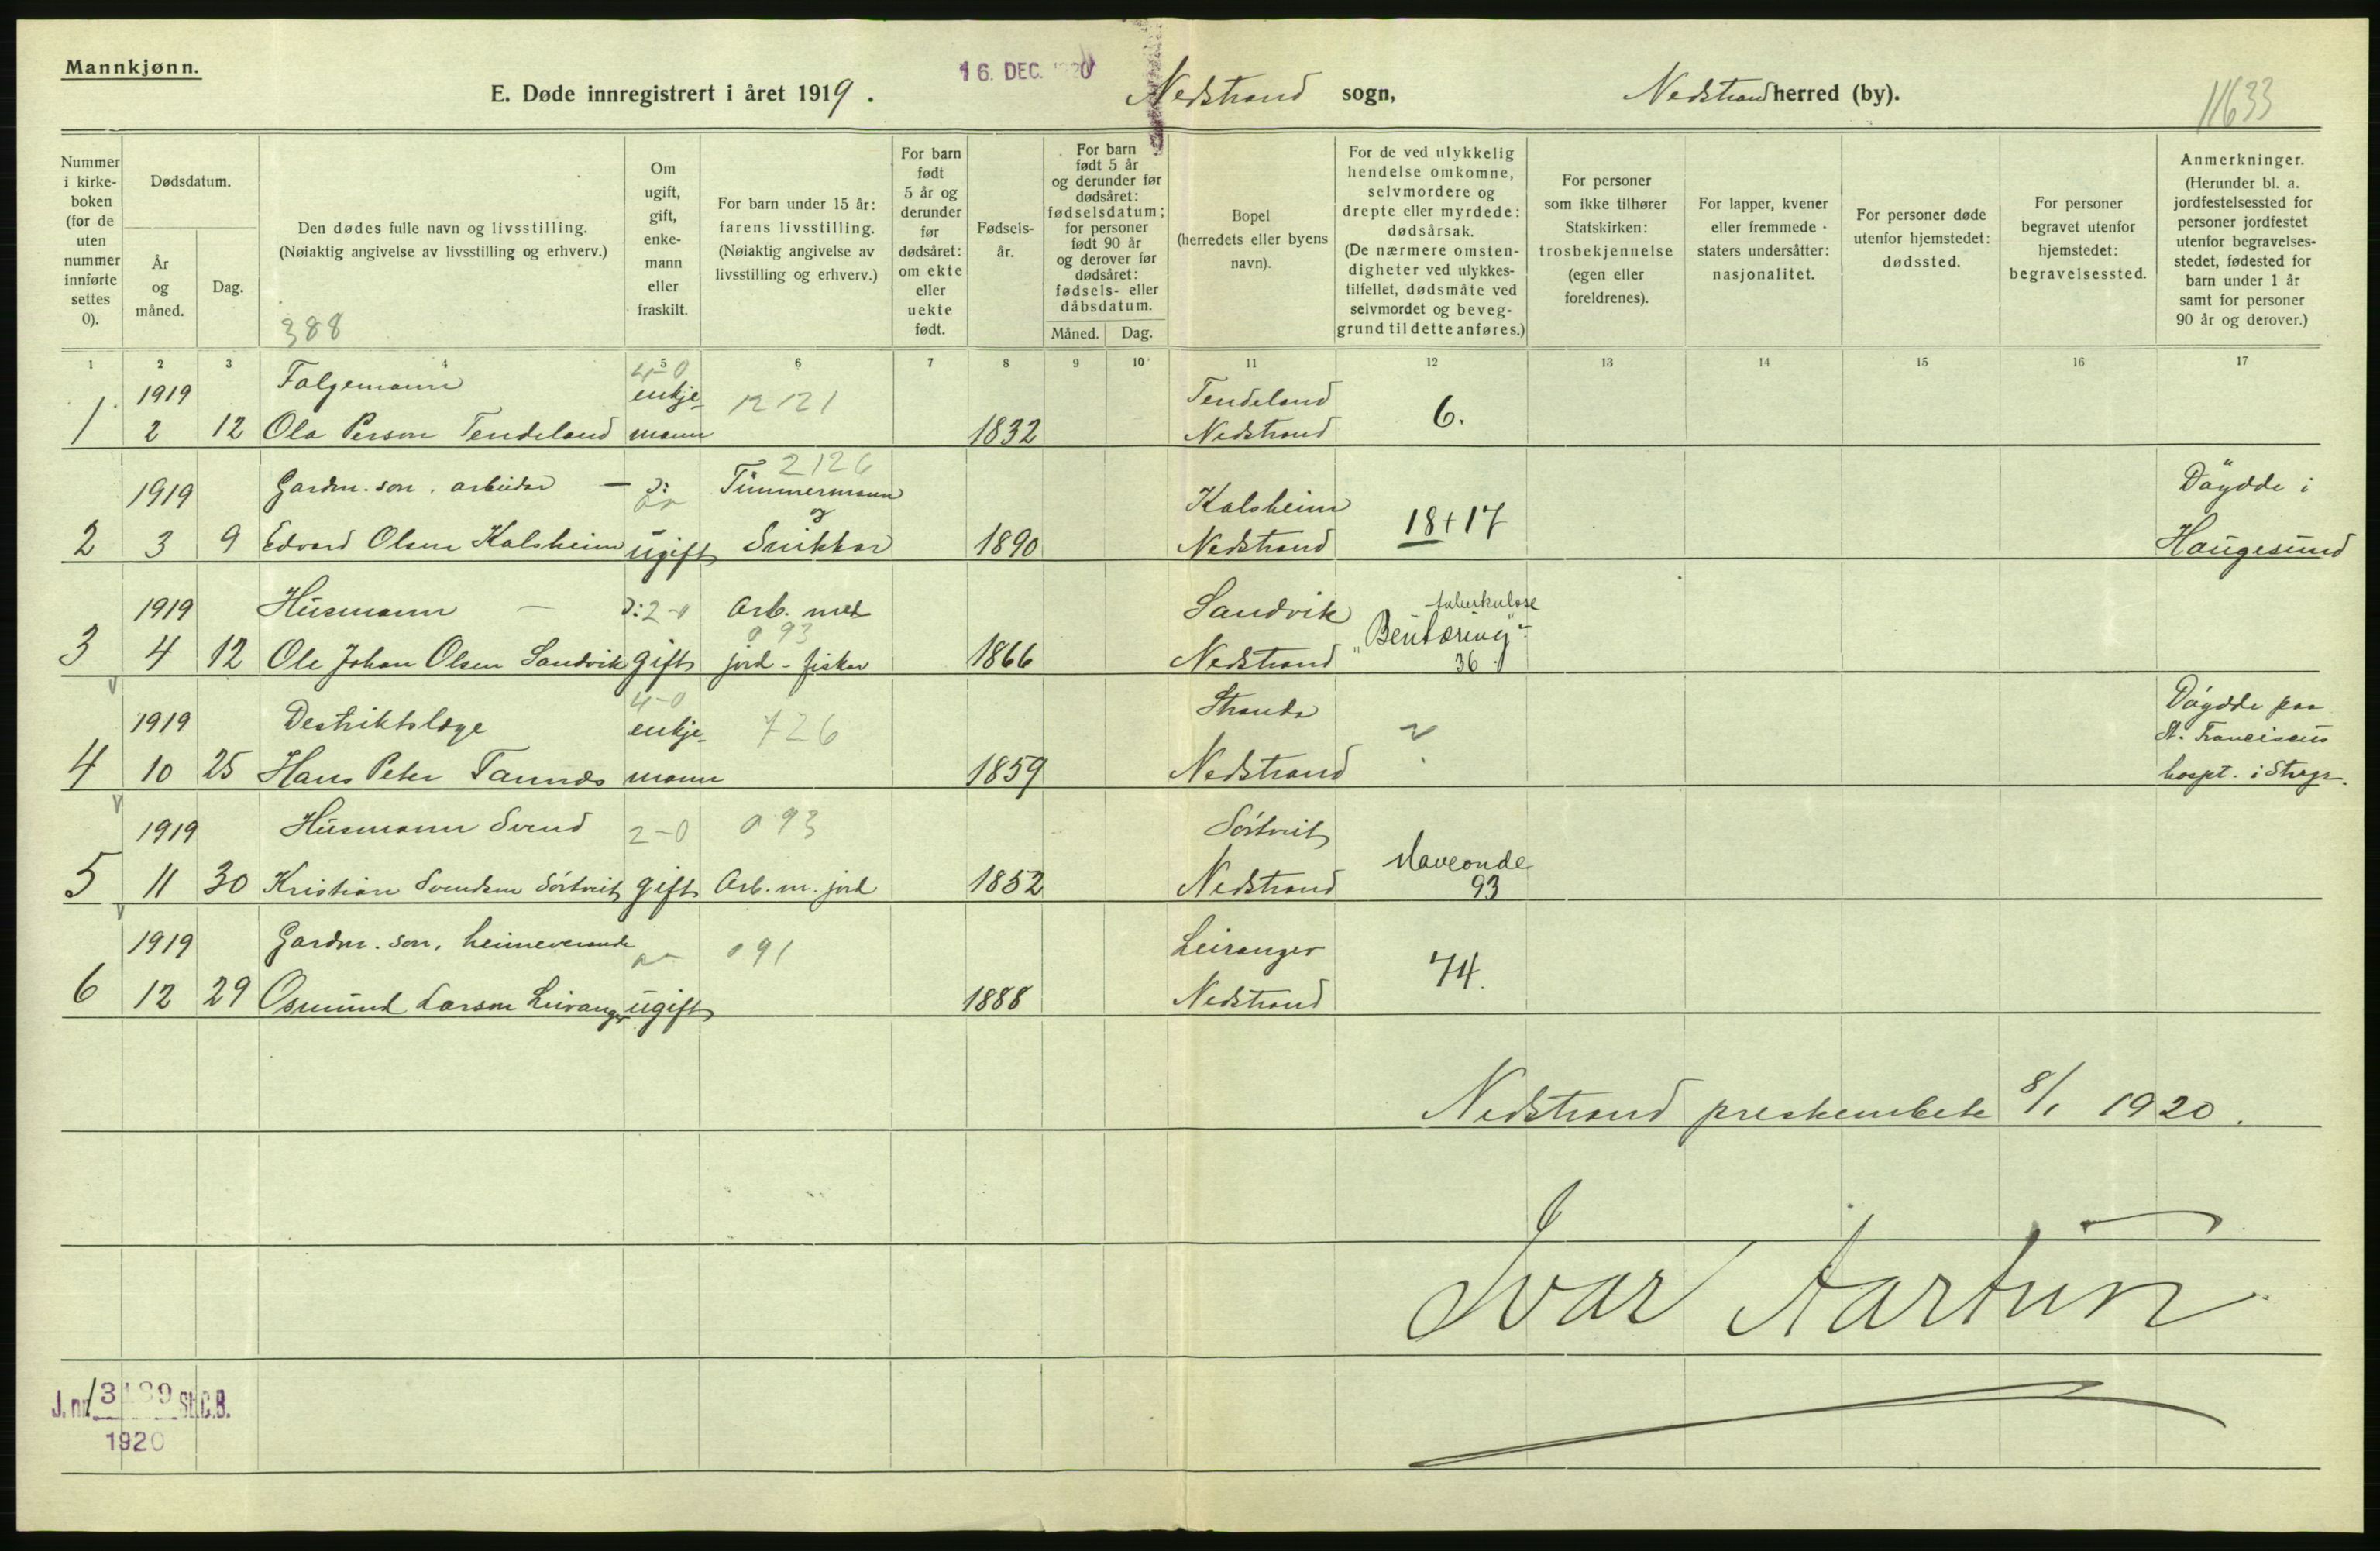 Mannkjønn.
16. DEC. 1920
E. Døde innregistrert i året 1919.
Nedstrand sogn,
Nedstrand herred (by).
11633
Nummer i kirke- boken (for de uten nummer innførte settes 0).
Dødsdatum.
År og måned.
Dag.
Den dødes fulle navn og livsstilling.
(Nøiaktig angivelse av livsstilling og erhverv.)
388
Om ugift, gift, enke- mann eller fraskilt.
For barn under 15 år: farens livsstilling.
(Nøiaktig angivelse av livsstilling og erhverv.)
For barn født 5 år og derunder før dødsåret: om ekte eller uekte født.
Fødsels- år.
For barn født 5 år og derunder før dødsåret: fødselsdatum; for personer født 90 år og derover før dødsåret: fødsels- eller dåbsdatum.
Måned. Dag.
Bopel (herredets eller byens navn).
For de ved ulykkelig hendelse omkomne, selvmordere og drepte eller myrdede: dødsårsak.
(De nærmere omsten- digheter ved ulykkes- tilfellet, dødsmåte ved selvmordet og beveg- grund til dette anføres.)
For personer som ikke tilhører Statskirken: trosbekjennelse (egen eller foreldrenes).
For lapper, kvener eller fremmede staters undersåtter: nasjonalitet.
For personer døde utenfor hjemstedet: dødssted.
For personer begravet utenfor hjemstedet: begravelsessted.
Anmerkninger.
(Herunder bl. a. jordfestelsessted for personer jordfestet utenfor begravelses- stedet, fødested for barn under 1 år samt for personer 90 år og derover.)
1 2 3 4 5 6 7 8 9 10 11 12 13 14 15 16 17
1919 Folgemann 4-0 enkje- 12 121 Tendeland
1 2 12 Ola Person Tendeland mann 1832 Nedstrand 6.
2126
1919 Gardm. son. arbeidar — ɔ: Timmermann Kalsheim Döydde i
og
2 3 9 Edvard Olsen Kalsheim ugift Snikkar 1890 Nedstrand 18+17 Haugesund
1919 Husmann — ɔ: 2-0 Arb. med Sandvik tuberkulose
093 "Bentæring"
3 4 12 Ole Johan Olsen Sandvik gift jord - fiskar 1866 Nedstrand 36.
1919 Destriktslæge 4-0 enkje- 726 Stranda ? Döydde paa
St. Franciscus
4 10 25 Hans Peter Tannæs mann 1859 Nedstrand hospt. i Stvgr.
1919 Husmann Svend 2-0 093 Sörtveit
Maveonde
5 11 30 Kristian Svendsen Sörtveit gift Arb. m. jord 1852 Nedstrand 93
1919 Gardm. son, heimeverande 091 Leiranger
74.
6 12 29 Osmund Larson Leiranger ugift 1888 Nedstrand
Nedstrand prestembete 8/1 1920.
Ivar Aartun
J. nr. St.C.B.
1920